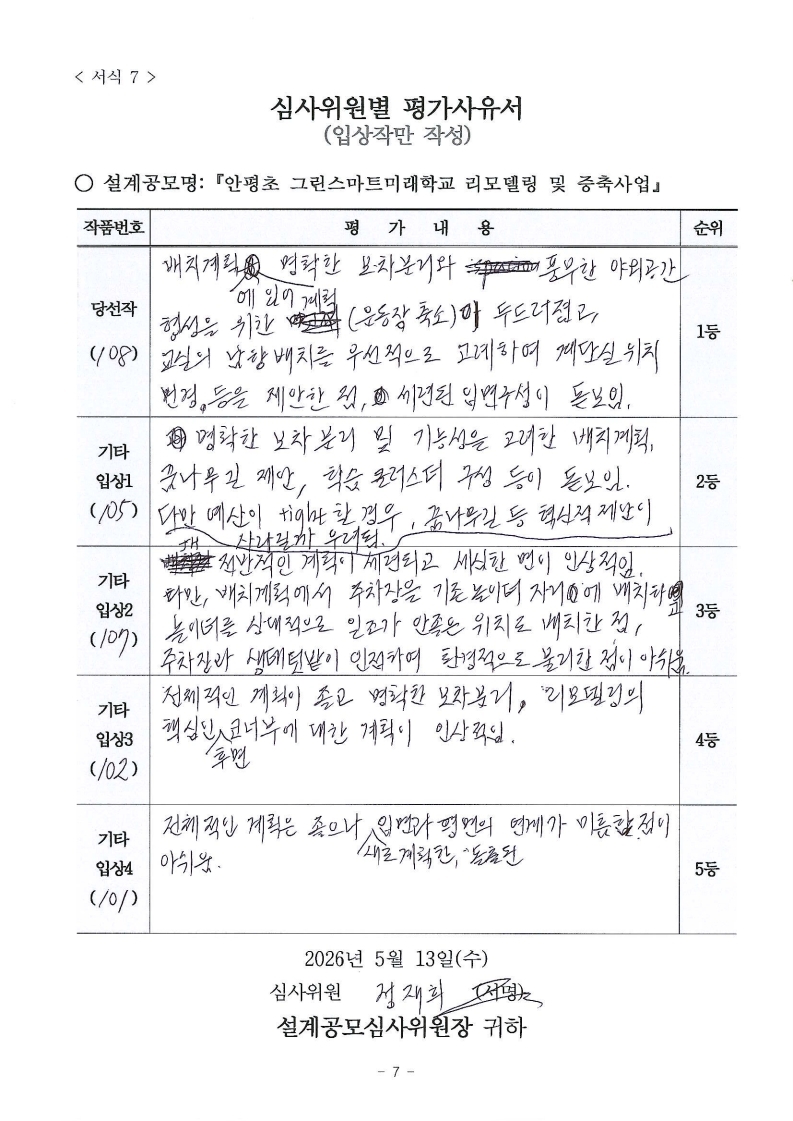 < 서식 7 >
심사위원별 평가사유서
(입상작만 작성)
○ 설계공모명: 『안평초 그린스마트미래학교 리모델링 및 증축사업』
작품번호 평 가 내 용 순위
당선작
(108)
배치계획 명확한 보차분리와 풍부한 야외공간
에 있어 계획
형성을 위한 (운동장 축소)이 두드러졌고,
교실의 남향배치를 우선적으로 고려하여 계단실 위치
변경, 등을 제안한 점, 세련된 입면구성이 돋보임.
1등
기타
입상1
(105)
명확한 보차분리 및 기능성을 고려한 배치계획,
꿈나무길 제안, 학습 클러스터 구성 등이 돋보임.
다만 예산이 tight한 경우, 꿈나무길 등 혁신적 제안이
사라질까 우려됨.
2등
기타
입상2
(107)
전반적인 계획이 세련되고 세심한 면이 인상적임.
다만, 배치계획에서 주차장을 기존 놀이터 자리에 배치하고
놀이터를 상대적으로 일조가 안좋은 위치로 배치한 점,
주차장과 생태텃밭이 인접하여 환경적으로 불리한 점이 아쉬움.
3등
기타
입상3
(102)
전체적인 계획이 좋고 명확한 보차분리, 리모델링의
핵심인 코너부에 대한 계획이 인상적임.
후면
4등
기타
입상4
(101)
전체적인 계획은 좋으나 입면과 평면의 연계가 미흡한 점이
새로 계획한, 돌출된
아쉬움.
5등
2026년 5월 13일(수)
심사위원 정재희 (서명)
설계공모심사위원장 귀하
- 7 -